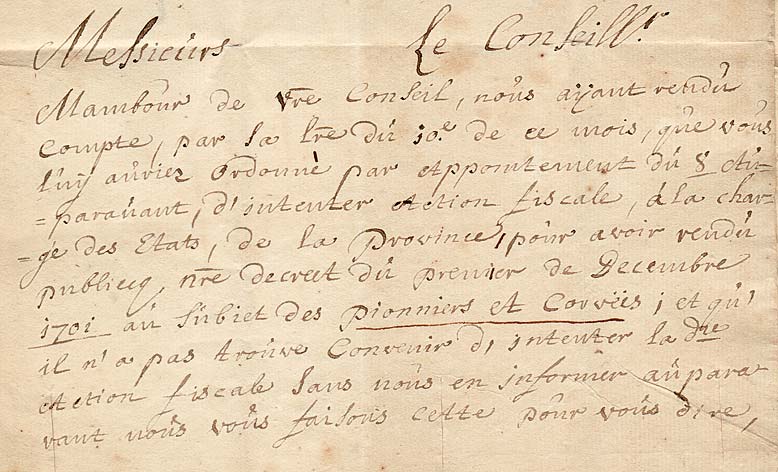 Messieurs Le Conseill.r
Mambour de vre Conseil, nous aÿant rendu
compte, par sa lre du 10.e de ce mois, que vous
luy auriez ordonné par appointement du 8 au-
=paravant, d'intenter action fiscale, á la char-
=ge des Etats, de la Province, pour avoir rendu
publicq, nre decreet du premier de Decembre
1701 au subiet des pionniers et Corvëes ; et qu'
il n'a pas trouvé Convenir d'intenter la dite
action fiscale sans nous en informer aupara
vant nous vous faisons cette pour vous dire,